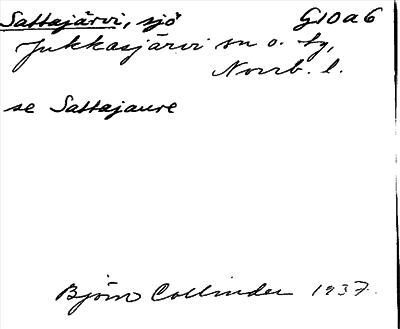 Sattajärvi, sjö G10a6
Jukkasjärvi sn o. tg,
Norrb. l.
se Sattajaure
Björn Collinder 1937.